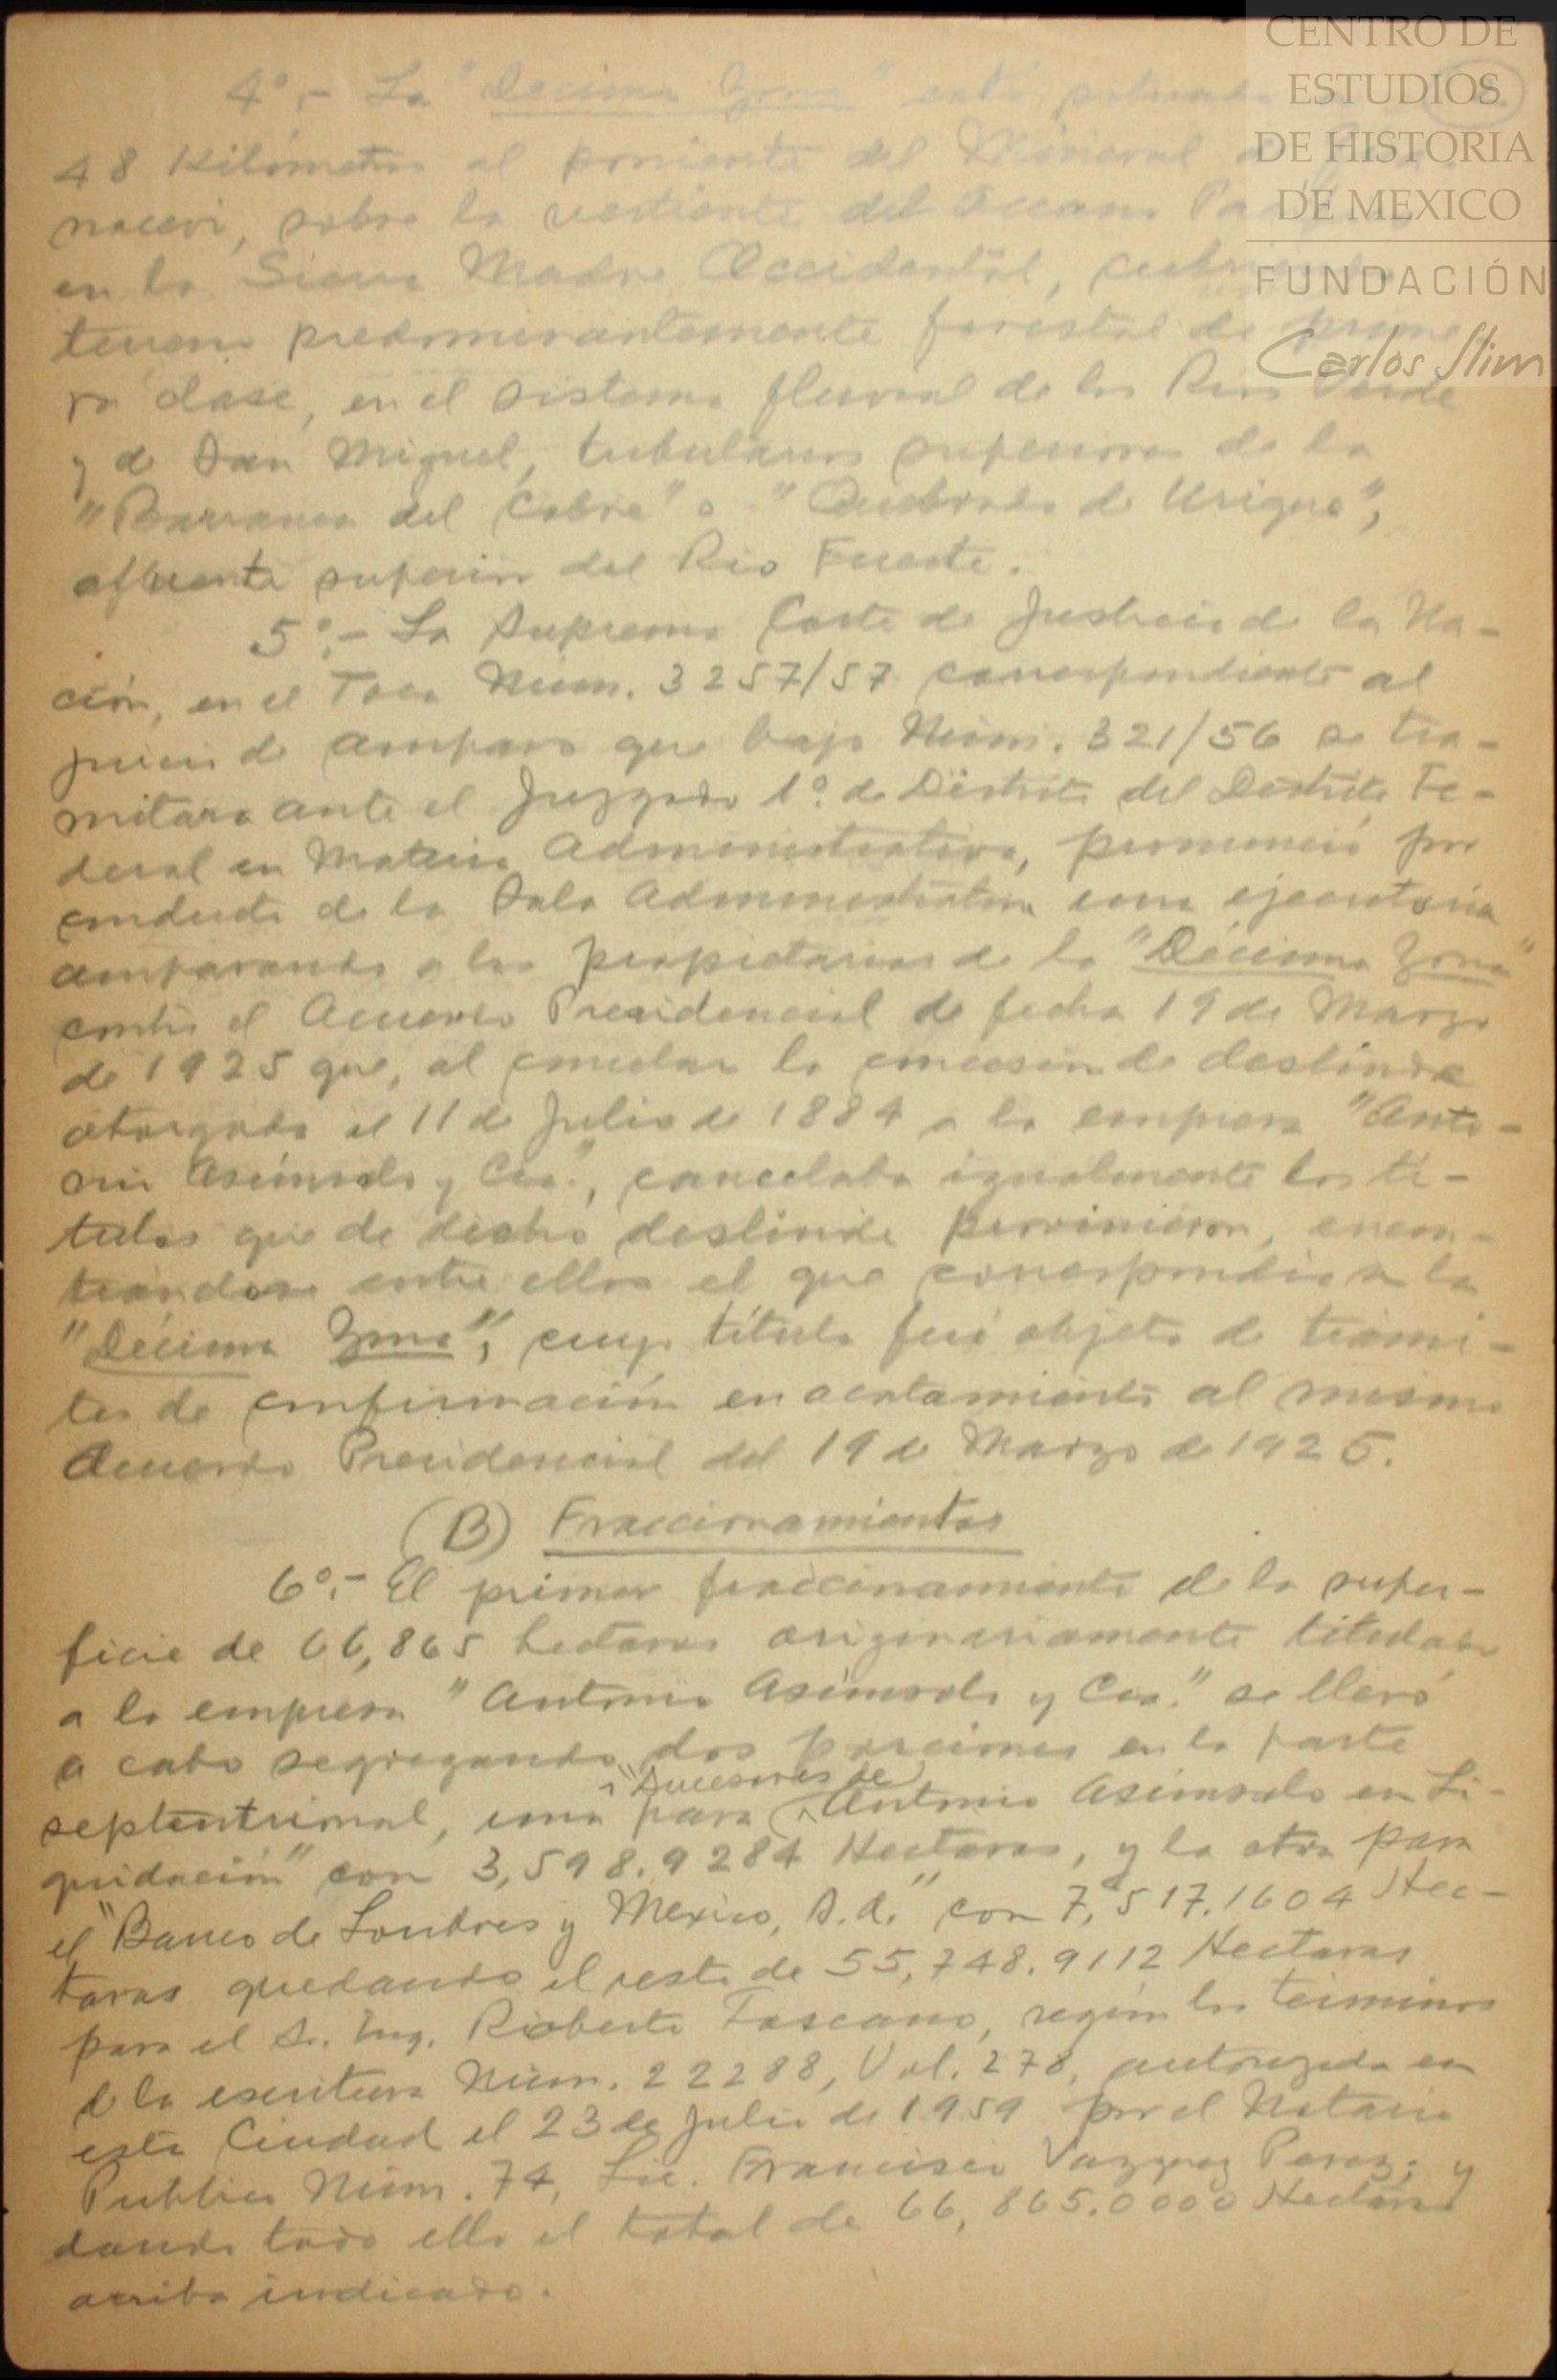 CENTRO DE
ESTUDIOS
DE HISTORIA
DE MEXICO
FUNDACIÓN
Carlos Slim
4°.- La "Decima Zona" está situada
48 Kilómetros al poniente del Mineral de
nacevi, sobre la vertiente del Oceano
en la Sierra Madre Occidental,
terreno predominantemente forestal de prime
ra clase, en el sistema fluvial de los Rios Verde
y de San Miguel, tributarios superiores de la
"Barranca del Cobre" o "Quebrada de Urique",
afluente superior del Rio Fuerte.
5°.- La Suprema Corte de Justicia de la Na-
ción, en el Toca Núm. 3257/57 correspondiente al
juicio de amparo que bajo Núm. 321/56 se tra-
mitara ante el Juzgado 1°. de Distrito del Distrito Fe-
deral en Materia Administrativa, pronunció por
conducto de la Sala Administrativa una ejecutoria
amparando a los propietarios de la "Décima Zona"
contra el Acuerdo Presidencial de fecha 19 de Marzo
de 1925 que, al cancelar la concesión de deslinde
otorgada el 11 de Julio de 1884 a la empresa "Anto-
nio Asúnsolo y Cia.", cancelaba igualmente los tí-
tulos que de dicho deslinde provinieron, encon-
trandose entre ellos el que correspondía a la
"Décima Zona", cuyo título fué objeto de trámi-
tes de confirmación en acatamiento al mismo
Acuerdo Presidencial del 19 de Marzo de 1925.
(B) Fraccionamientos
6°.- El primer fraccionamiento de la super-
ficie de 66,865 hectaras originariamente titulada
a la empresa "Antonio Asúnsolo y Cia." se llevó
a cabo segregando dos porciones en la parte
septentrional, una para "Sucesores de Antonio Asúnsolo en Li-
quidación" con 3,598.9284 Hectaras, y la otra para
el "Banco de Londres y Mexico, S.A." con 7,517.1604 Hec-
taras quedando el resto de 55,748.9112 Hectaras
para el Sr. Ing. Roberto Toscano, según los términos
de la escritura Núm. 22288, Vol. 278, autorizada en
esta Ciudad el 23 de Julio de 1959 por el Notario
Publico Núm. 74, Lic. Francisco Vazquez Perez; y
dando todo ello el total de 66,865.0000 Hectaras
arriba indicado.